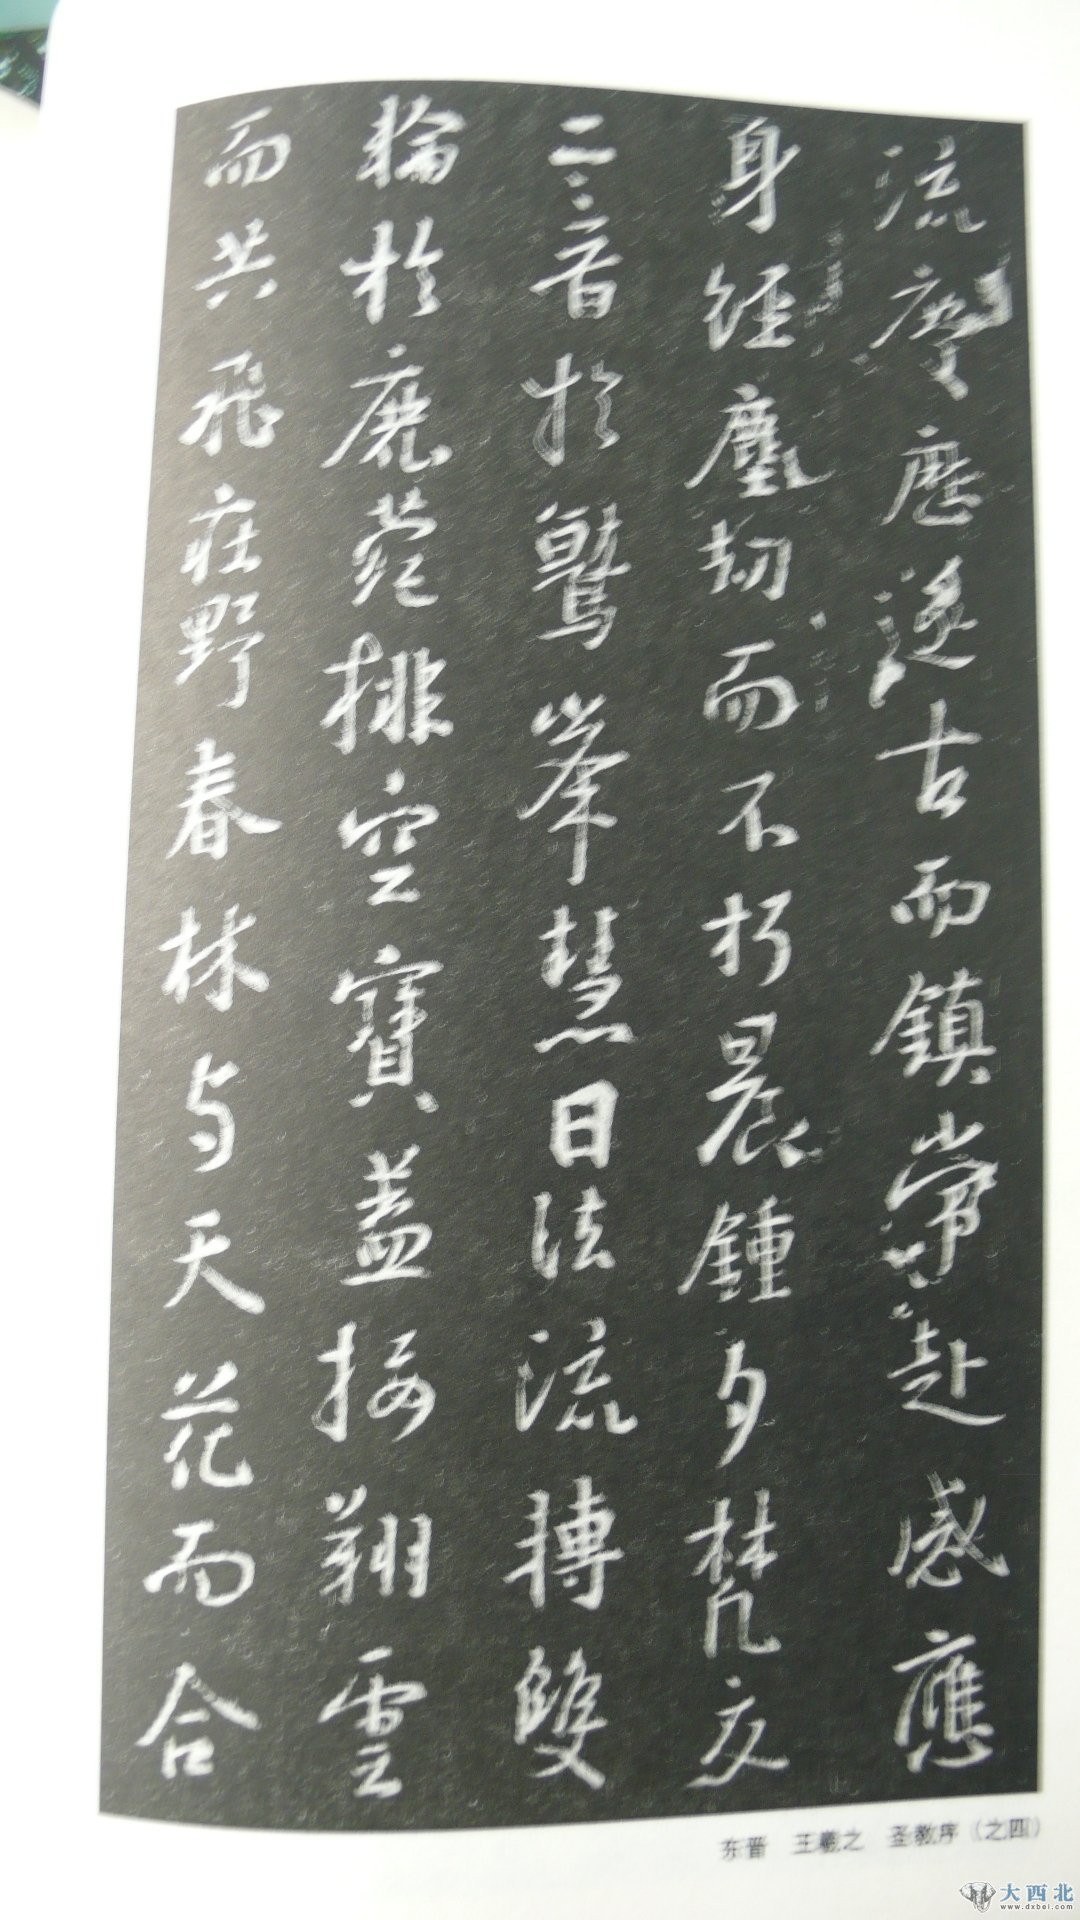 流慶歷遂古而鎮常赴感應
身經塵劫而不朽晨鍾夕梵交
二音於鷲峯慧日法流轉雙
輪於鹿菀排空寶蓋接翔雲
而共飛莊野春林与天花而合
东晋 王羲之 圣教序(之四)
大西北
www.dxbei.com